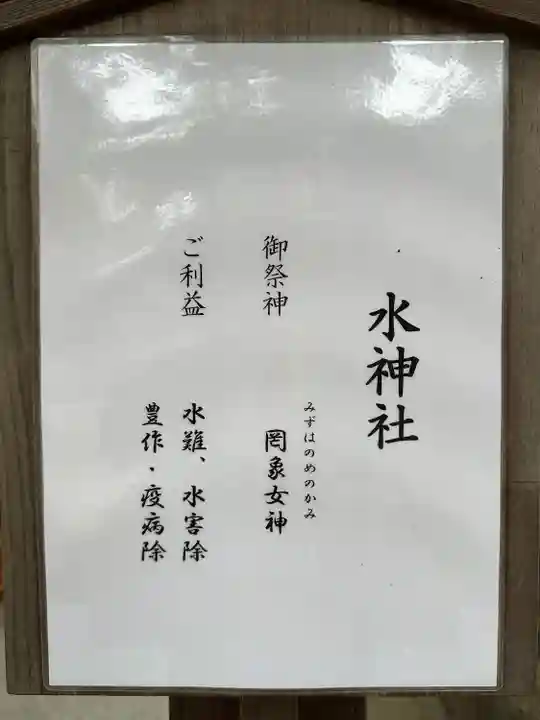 水神社
御祭神 罔象女神
みずはのめのかみ
ご利益 水難、水害除
豊作・疫病除